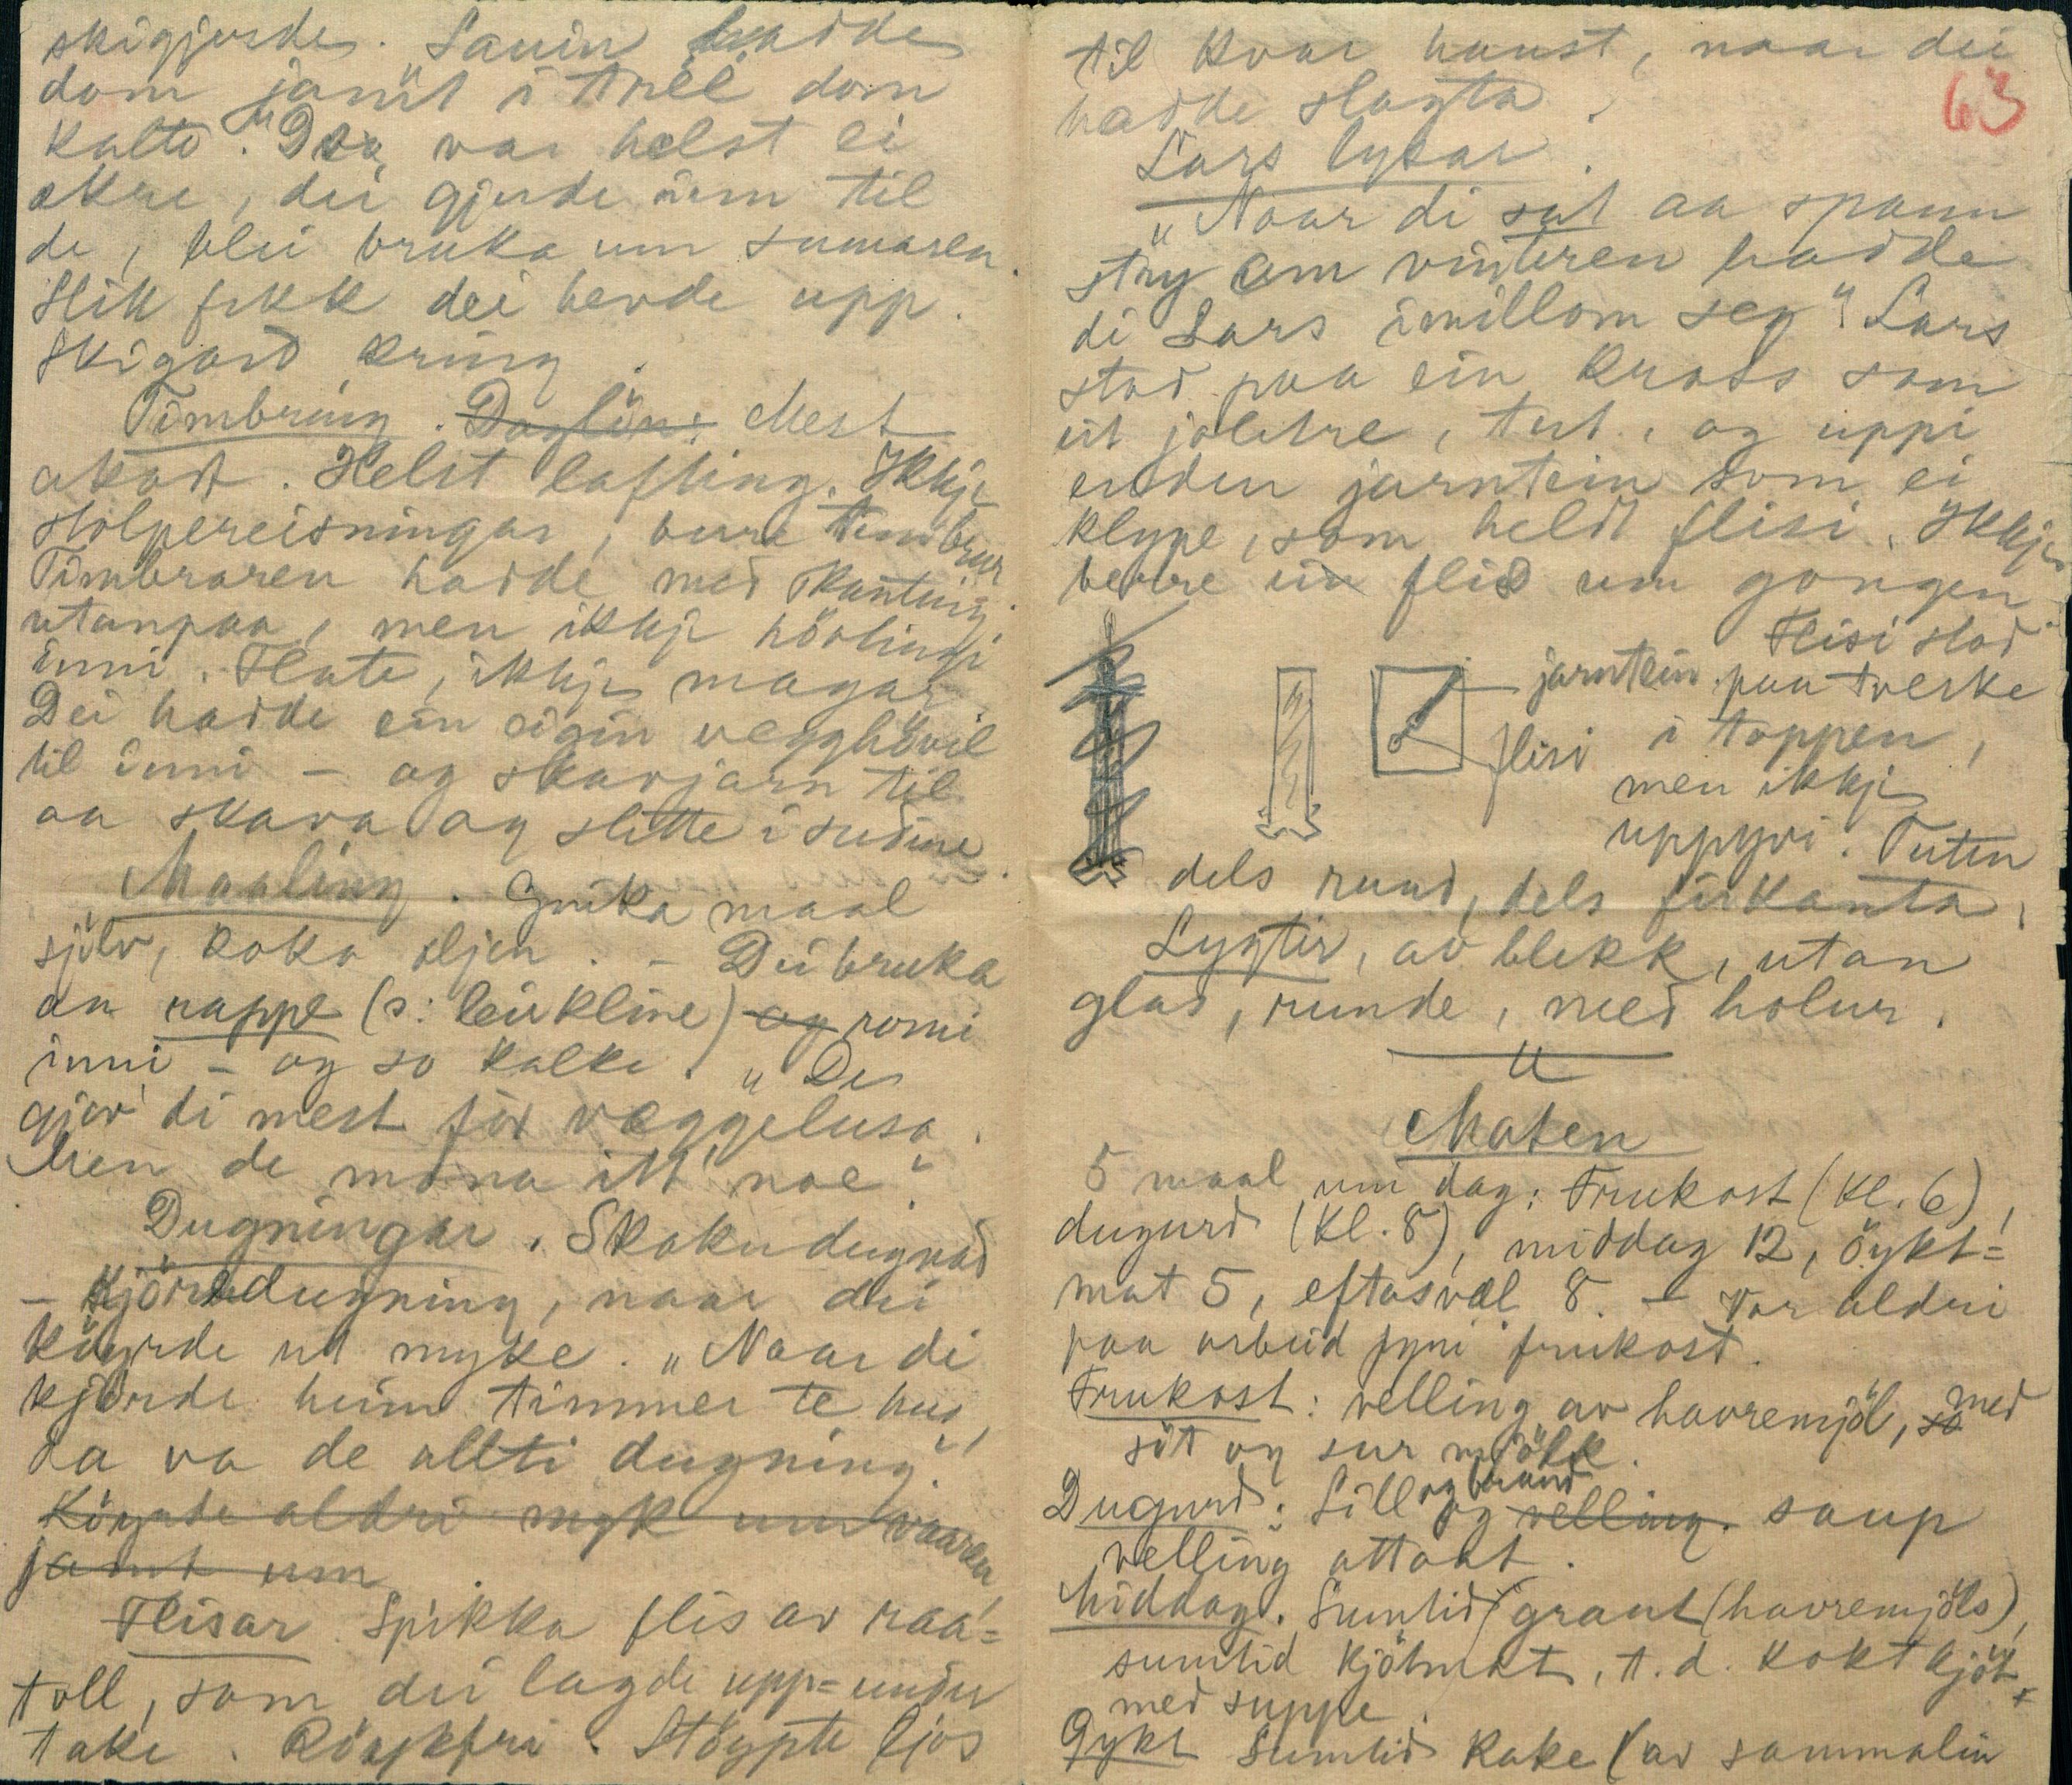 skigjerde. "Sauin hadde
dom jamt i træe" dom
kalte. De var helst ei
åkre, dei gjerde inn til
de, blei bruka um sumaren.
Slik fekk dei hevde upp.
Skigard kring.
Timbring. Daglön: Mest
akord. Helst lafting. Ikkje
stolpereisningar, bere timbrur
Timbraren hadde med skanting
utanpaa, men ikkje hövlingi
inni. Flate, ikkje magar.
Dei hadde ein eigin vegghövil
til inni – og skavjarn til
aa skava og slitte i sudine.
Maaling. Gnika maal
sjölv, koka oljen. – Dei bruka
aa rappe (ɔ: leirkline) og romi
inni – og so kalke. "De
gjor di mest för væggelusa.
Men de mona itt noe".
Dugningar. Skokudugnad
– Kjöredugning, naar dei
köyrde ut myke. "Naar di
kjörde heim timmer te hus,
da va de allti dugning".
Köyrde aldri myk um vaaren,
jamt um
Flisar. Spikka flis av raa-
toll, som dei lagde upp-under
take. Röykfri. Stöypte ljos
til kvar haust, naar dei
hadde slagta.
63
Lars lysar.
"Naar di sat aa spann
stry om vinteren hadde
di Lars imillom seg". Lars
stod paa ein kross som
eit joletre, tut, og uppi
enden jarntein som ei
klype, som heldt flisi. Ikkje
berre ein flis um gongen.
Flisi stod
jarntein paa tverke
flisi i toppen,
men ikkje
uppyvi. Tuten
dels rund, dels firkanta.
Lygtir, av blekk, utan
glas, runde, med holur.
Maten
5 maal um dag: Frukost (kl. 6),
dugurd (kl. 8), middag 12, öykt-
mat 5, eftasvæl 8. – For aldri
paa arbeid fyri frukost.
Frukost: velling av havremjöl, so med
söt og sur mjölk.
Dugurd: Sill og braud og velling. saup
velling attaat.
Middag. Sumtid graut (havremjöls),
sumtid kjötmat, t.d. kokt kjöt
med suppe.
Öykt Sumtid kake (av sammalin